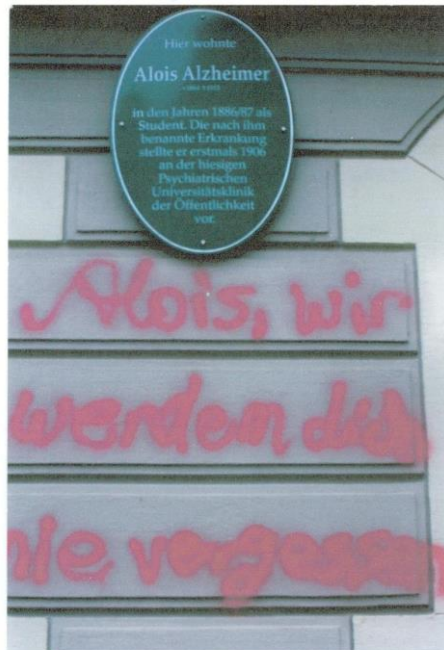 Hier wohnte
Alois Alzheimer
in den Jahren 1886/87 als
Student. Die nach ihm
benannte Erkrankung
stellte er erstmals 1906
an der hiesigen
Psychiatrischen
Universitätsklinik
der Öffentlichkeit
vor.
Alois, wir
werden dich
nie vergessen